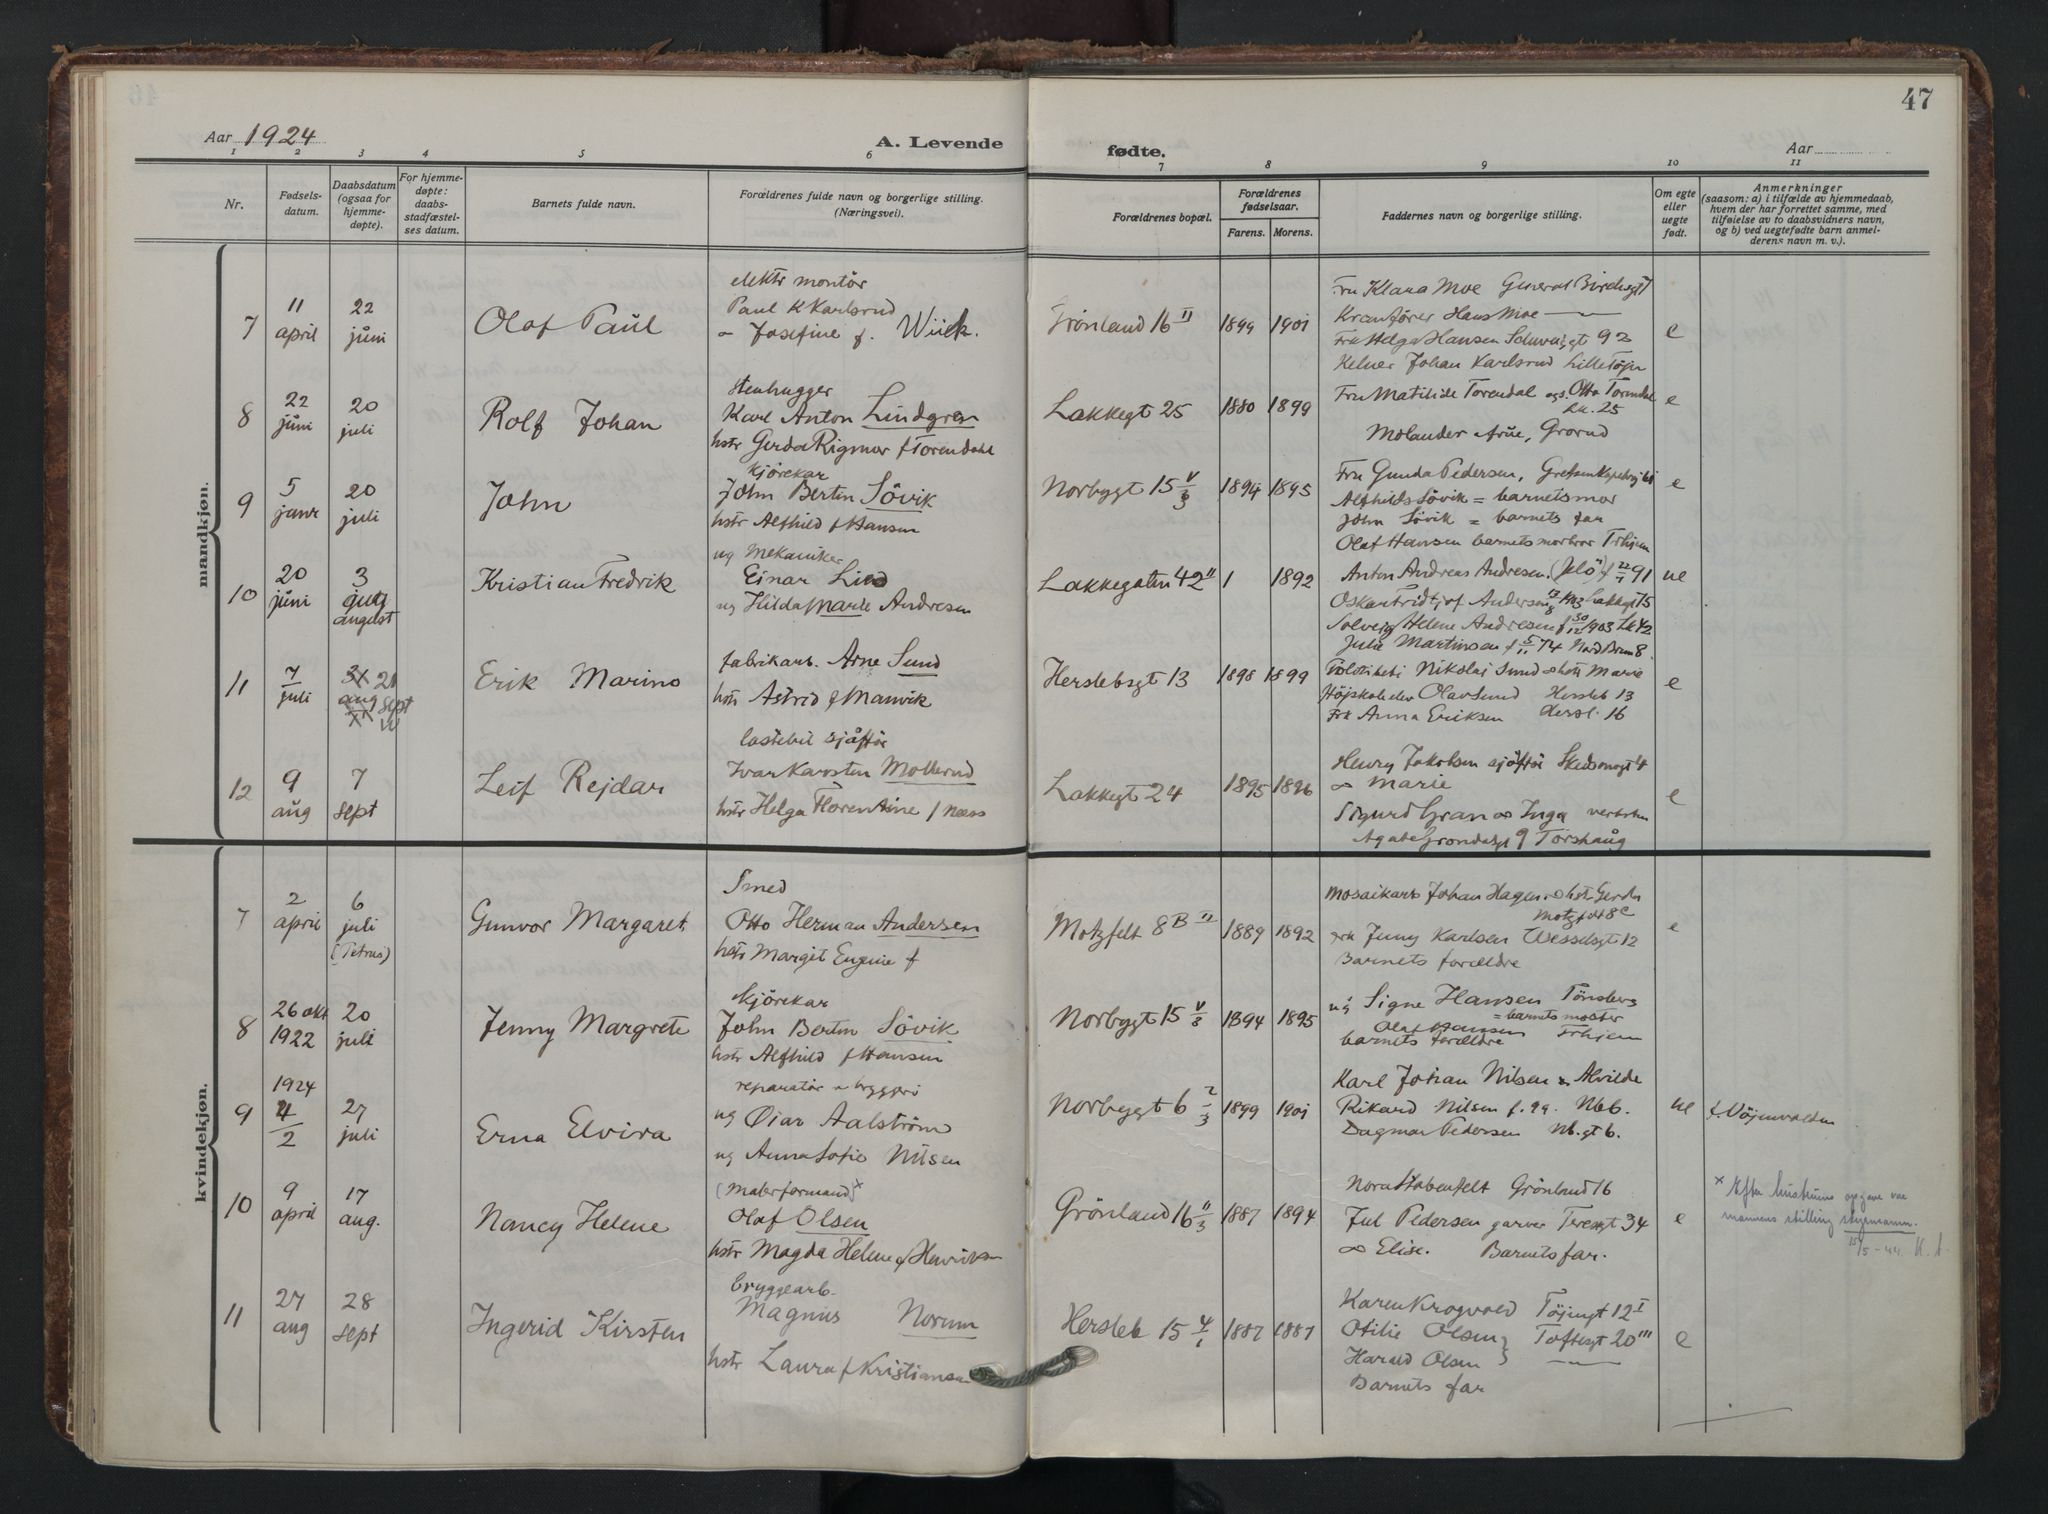 47
Aar 1924
A. Levende fødte.
Aar
1 2 3 4 5 6 7 8 9 10 11
Nr.
Fødsels-
datum.
Daabsdatum
(ogsaa for
hjemme-
døpte).
For hjemme-
døpte:
daabs-
stadfæstel-
ses datum.
Barnets fulde navn.
Forældrenes fulde navn og borgerlige stilling.
(Næringsvei).
Forældrenes bopæl.
Forældrenes
fødselsaar.
Farens. Morens.
Faddernes navn og borgerlige stilling.
Om egte
eller
uegte
født.
Anmerkninger
(saasom: a) i tilfælde av hjemmedaab,
hvem der har forrettet samme, med
tilføielse av to daabsvidners navn,
og b) ved uegtefødte barn anmel-
derens navn m. v.).
mandkjøn.
7
11
april
22
juni
Olaf Paul
elektr montör
Paul K Karlsrud
Josefine f. Wiick.
Grönland 16 II
1899 1901
Fru Klara Moe General Birchsgt
Kranförer Hans Moe
Frk Helga Hansen 92
Kelner Johan Karlsrud Lille Töjen
e
8
22
juni
20
juli
Rolf Johan
Stenhugger
Karl Anton Lindgren
hstr Gerda Rigmor f Torendahl
Lakkegt 25
1880 1899
Fru Mathilde Torendal Otto Torendal
Lk. 25
Molander Grorud
e
9
5
janr
20
juli
John
Kjörekar
John Bertin Sövik
hstr Alfhild f Hansen
Norbygt 15 V/3
1894 1895
Fru Gunda Pedersen,
Alfhild Sövik = barnets mor
John Sövik = barnets far
Olaf Hansen barnets morbror Trhjem
e
10
20
juni
3
august
Kristian Fredrik
ug Mekaniker
Einar Lind
ug Hilda Marie Andresen
Lakkegaten 42 II
1 1892
Anton Andreas Andresen (Jelö) 91
Oskar Fridtjof Andersen Lakkegt 15
Solveig Helene Andresen f 30/12 1903 Lk 42
Julie Martinsen f 5/11 74 Nord Brun 8.
ue
11
7
juli
31 21
aug sept
Erik Marino
fabrikarb. Arne Sund
hstr Astrid f Manvik
Herslebsgt 13
1898 1899
Nikolai Sund hstr Marie
Höjskoleelev Olav Sund Hersleb 13
Frk Anna Eriksen Hersl. 16
e
12
9
aug
7
sept
Leif Rejdar
lastebil sjåfför
Ivar Karsten Mollerud
hstr Helga Florentine f Næss
Lakkegt 24
1895 1896
Henry Jakobsen sjöfför Skedsmogt 4
Marie
Sigurd Gran Inga
Agate Gröndalsgt 9 Torshaug
e
kvindekjøn.
7
2
april
6
juli
(Petrus)
Gunvor Margaret
Smed
Otto Herman Andersen
hstr Margit Eugenie f
Motzfelt 8 B II
1889 1892
Mosaikarb Johan Hagen hst. Gerda
Motzfelt 8 C
Frk Jenny Karlsen Wesselsgt 12
Barnets forældre
e
8
26 okt
1922
20
juli
Jenny Margrete
Kjörekar
John Bertin Sövik
hstr Alfhild f Hansen
Norbygt 15 V/3
1894 1895
ug Signe Hansen Tönsberg
= barnets moster
Olaf Hansen Trhjem
barnets forældre
9
1924
4
2
27
juli
Erna Elvira
reparatör bryggeri
ug Öiar Aalström
ug Anna Sofie Nilsen
Norbygt 6 2/3
1899 1901
Karl Johan Nilsen Alvilde
Rikard Nilsen f. 99. Nb 6.
Dagmar Pedersen Nb. gt 6.
ue
f. Vöjenvolden
10
9
april
17
aug.
Nancy Helene
(Malerformand) x
Olaf Olsen
hstr Magda Helene f Henriksen
Grönland 16 II/3
1887 1894
Nora Stabenfelt Grönland 16
Jul Pedersen garver Teresgt 34
Elise. Barnets far.
e
x Efter hustruens opgave var
mannens stilling styrmann.
15/5-44.
11
27
aug
28
sept
Ingerid Kirsten
bryggearb.
Magnus Norum
hstr Laura f Kristiansen
Hersleb 15 4/1
1887 1887
Karen Krogvold Töjengt 12 I
Otilie Olsen Toftesgt 20 III
Harald Olsen
Barnets far
e